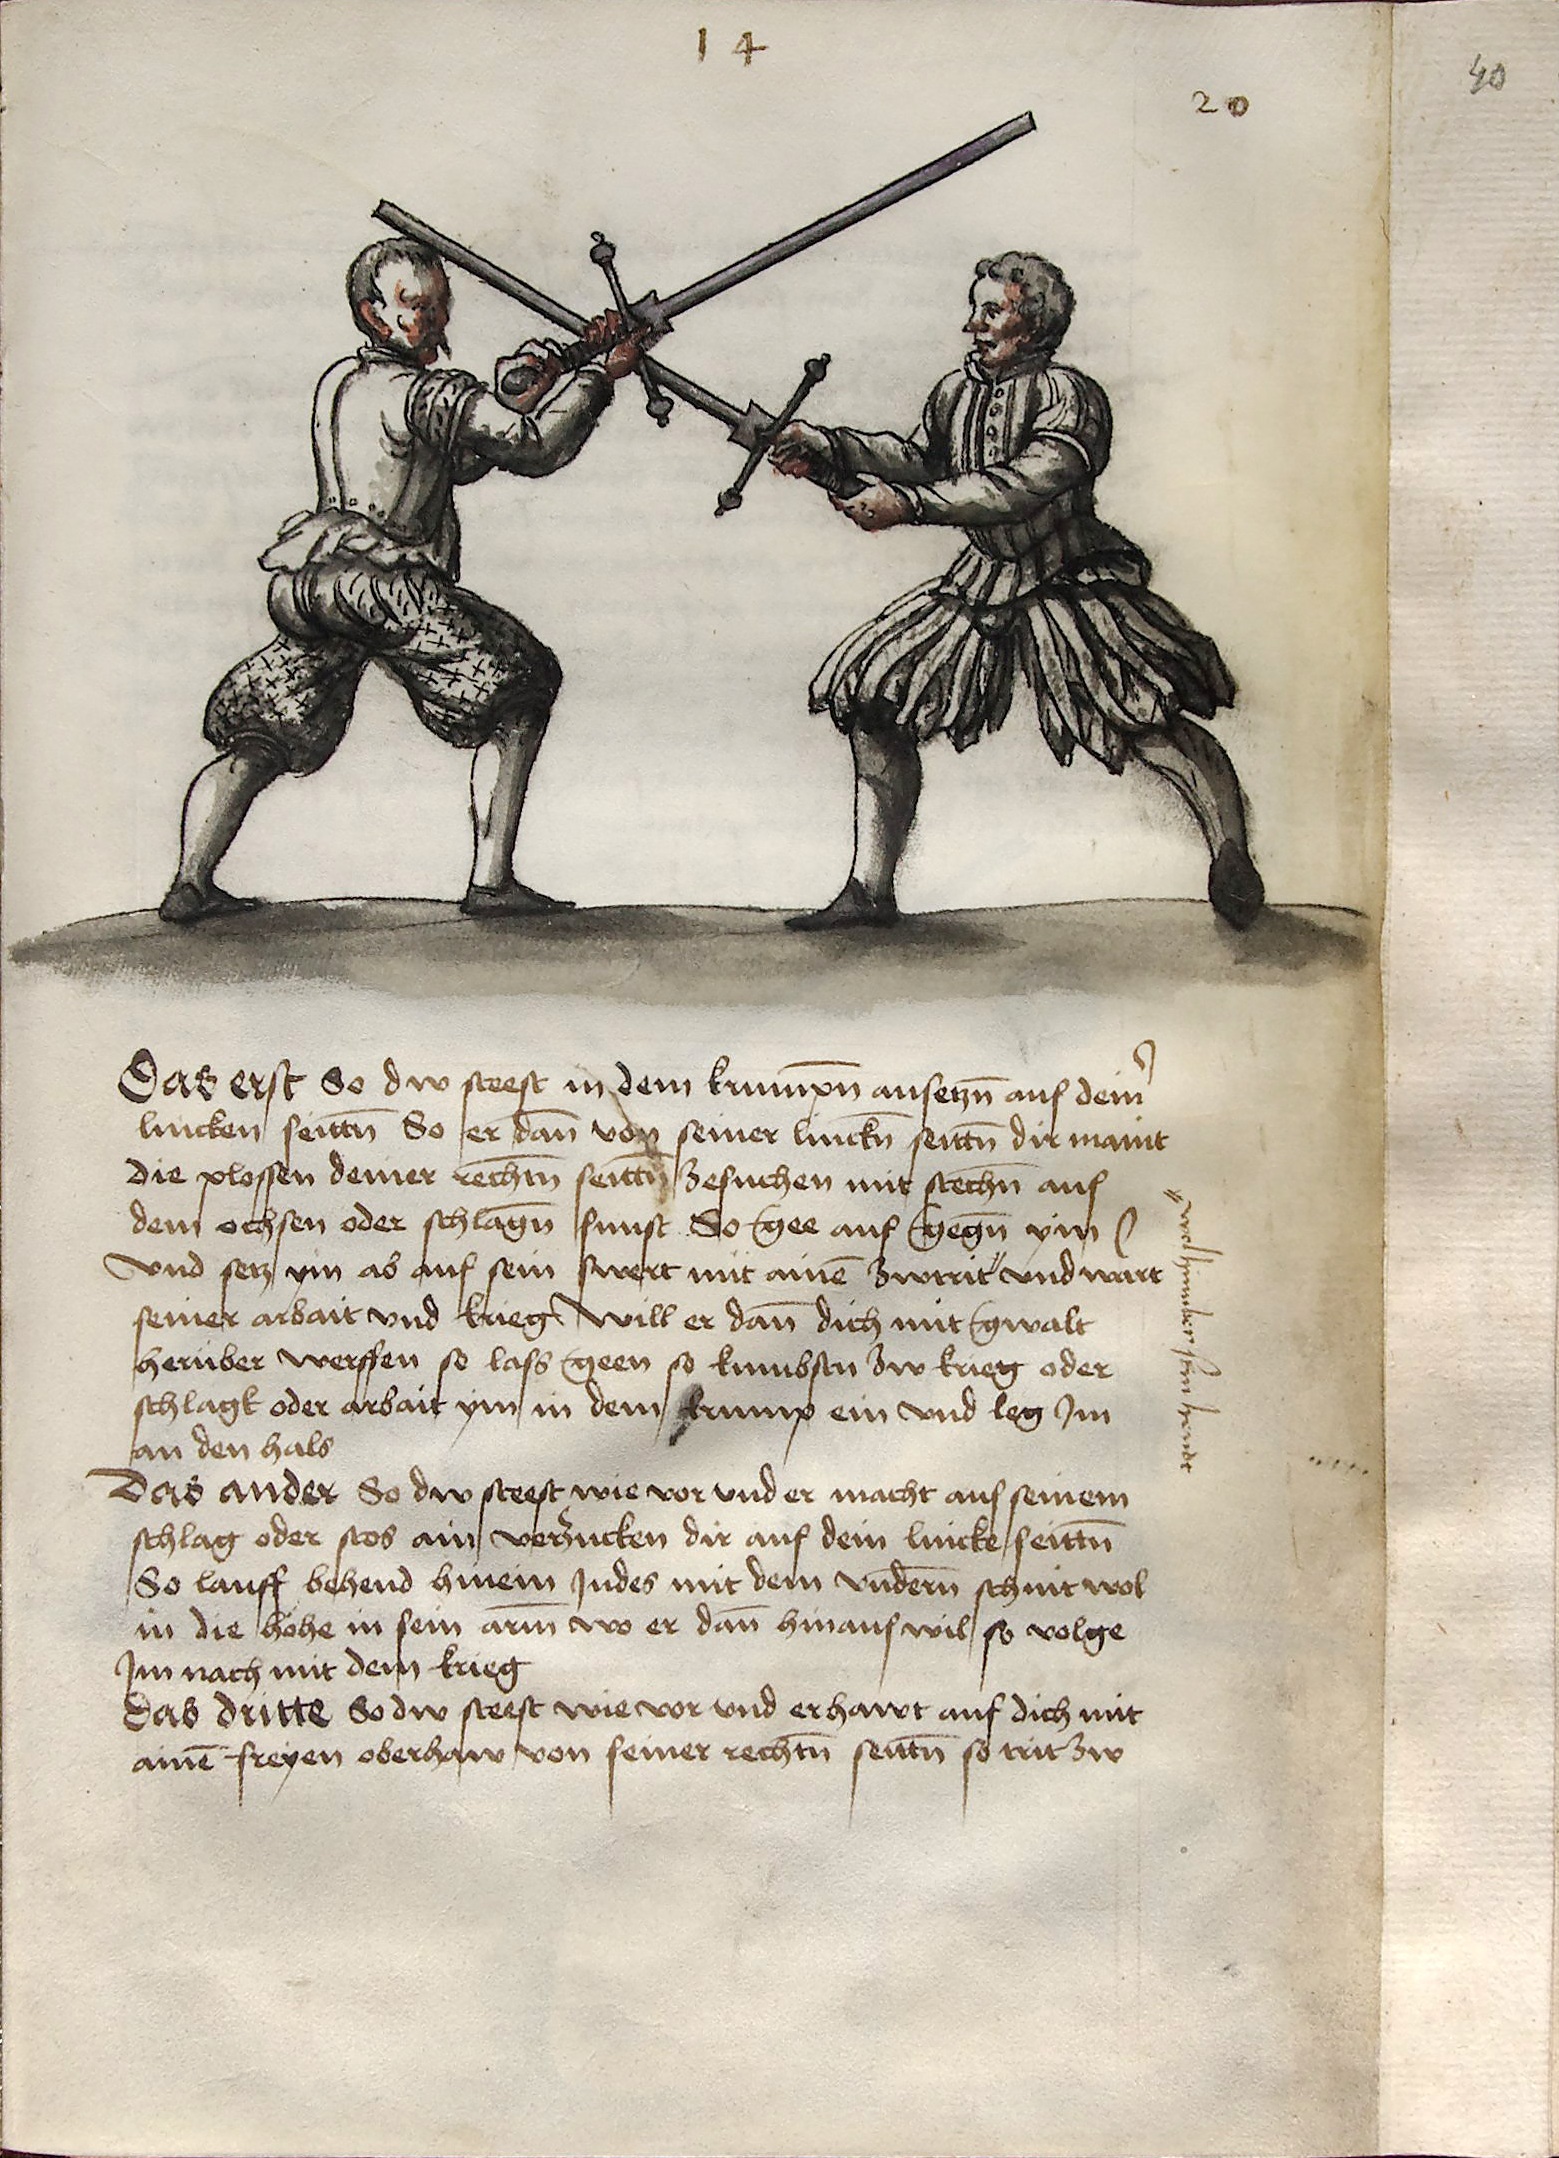 14
20
40
Das erst So dw steest in dem krumpn̄ ansetzn̄ auf dein
lincken seittn̄ So er dan̄ von seiner linckn̄ seittn̄ dir maint
die plossen deiner rechtn̄ seittn̄ zesuchen mit stechn̄ auß
dem ochsen oder schlagn̄ sunst So gee auf gegn̄ ym
vnd setz ym ab auf sein swert mit ainē zwtrit" vnd wart
seiner arbait vnd krieg Will er dan̄ dich mit gwalt
herüber werffen so lass geen so kumbstu zw krieg oder
schlagt oder arbait ym in dem krump ein vnd leg Im
an den hals
Das ander So dw steest wie vor vnd er macht auß seinem
schlag oder stos ain verzucken dir auf dein lincke seittn̄
So lauff behend hinein Indes mit dem vndern̄ schnit wol
in die höhe in sein arm̄ wo er dan̄ hinauß wil so volge
Im nach mit dem krieg
Das dritte So dw steest wie vor vnd er hawt auf dich mit
ainē freyen oberhaw von seiner rechtn̄ seittn̄ so trit zw
" wol hinuber sein hendt